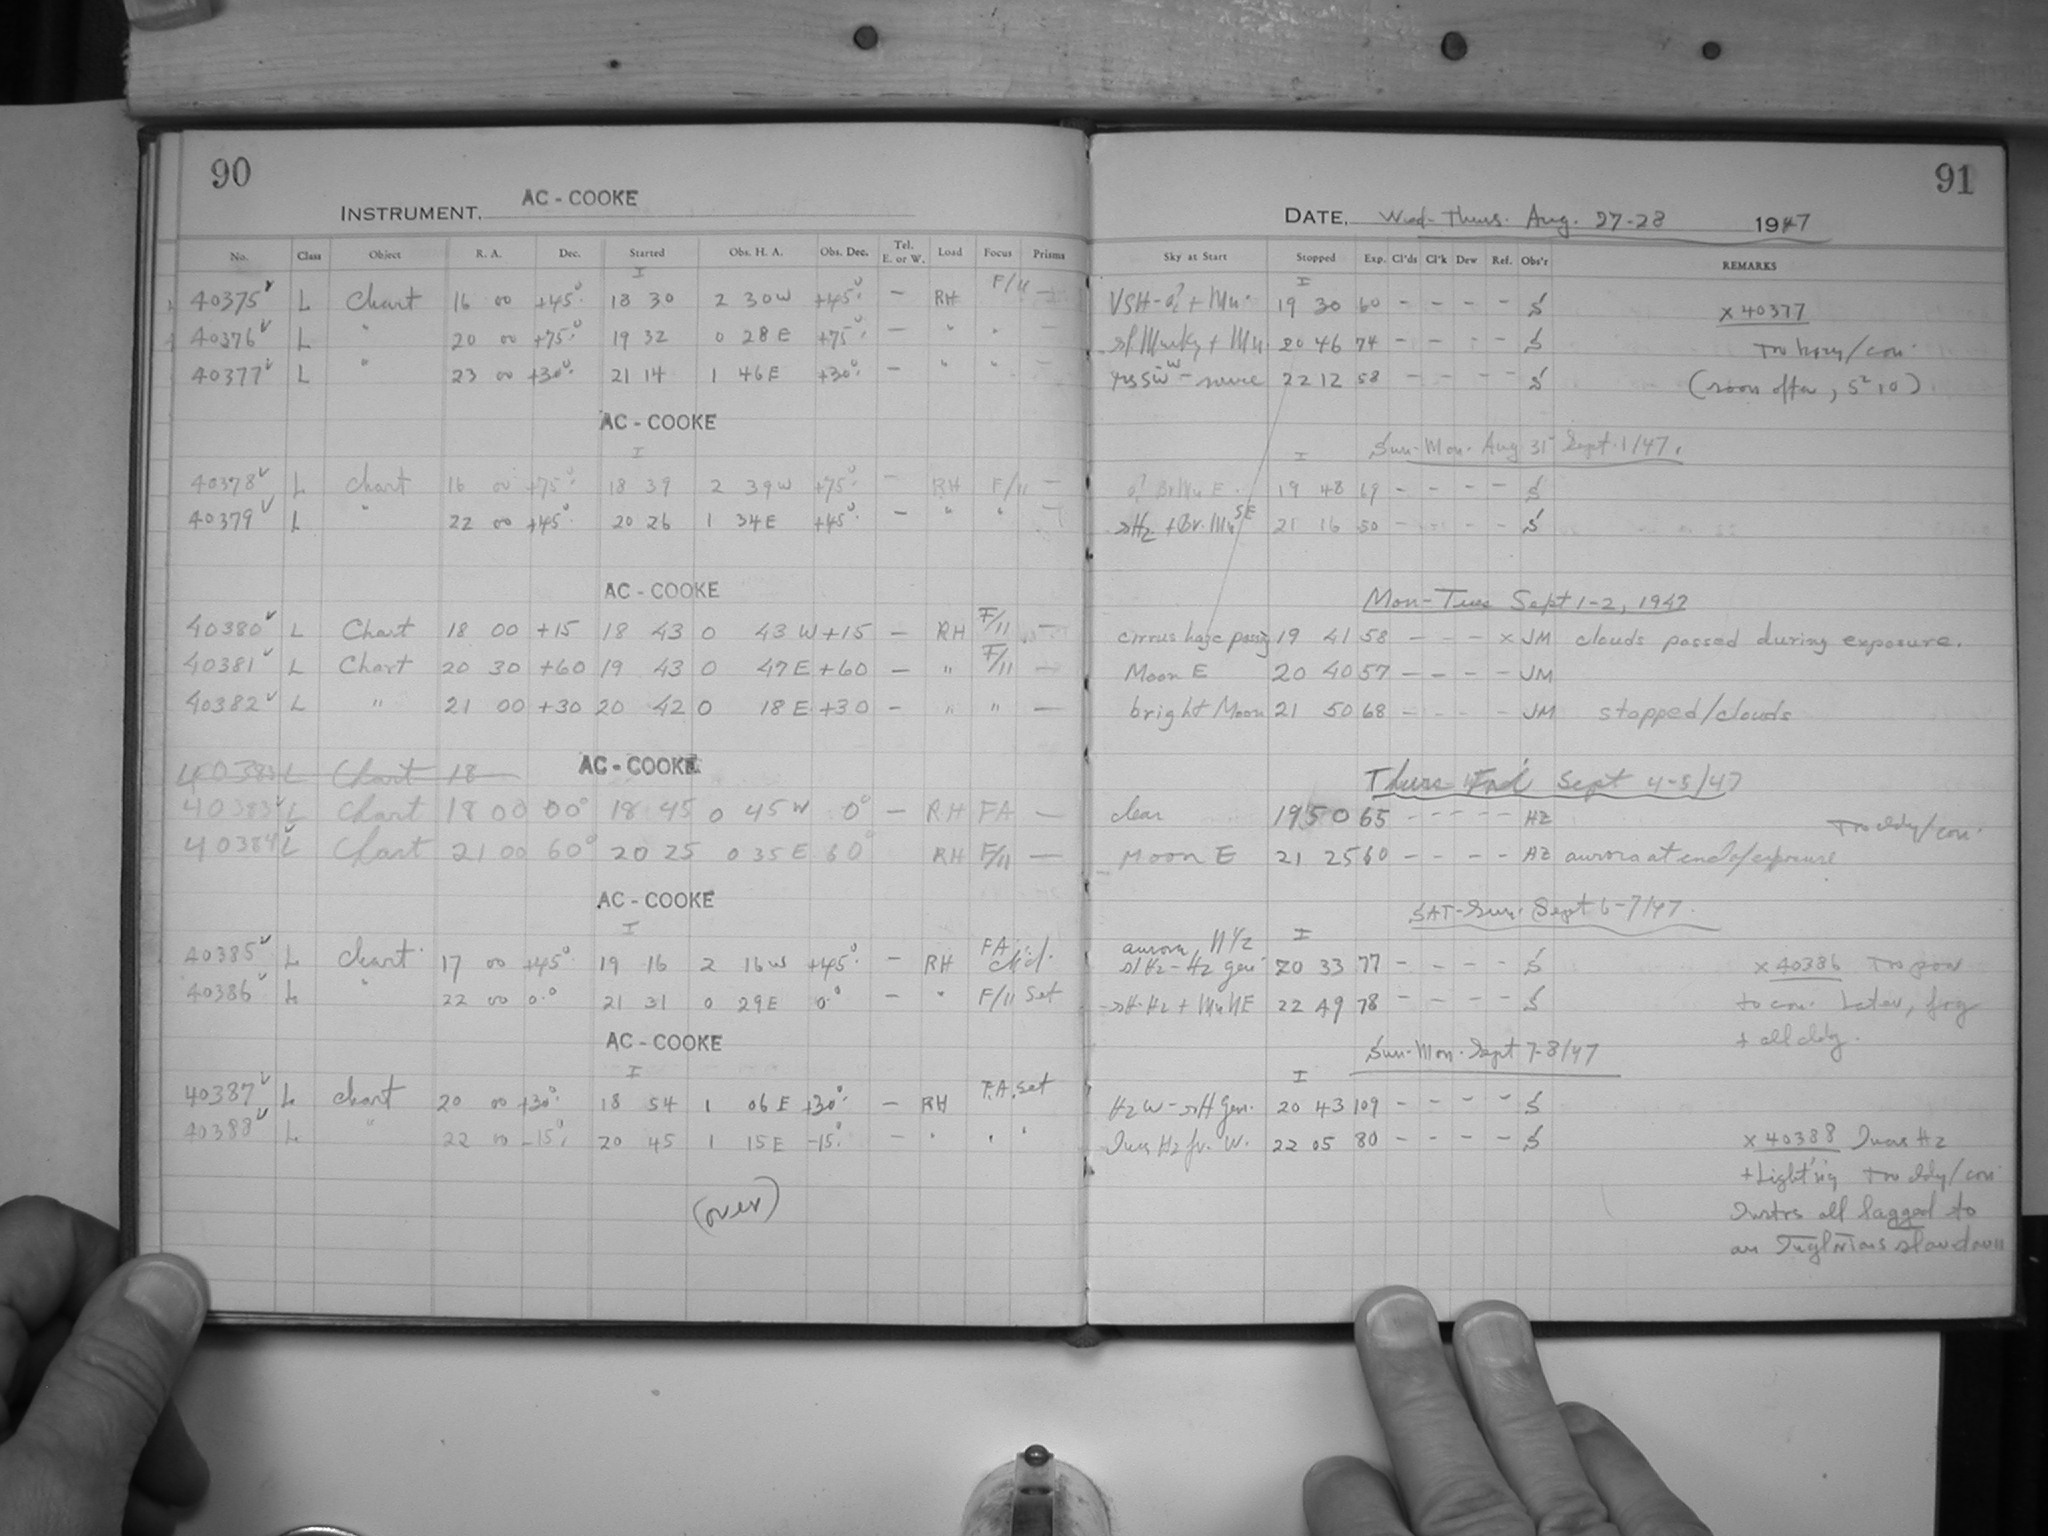 90
AC - COOKE
INSTRUMENT.
No. Class Object R. A. Dec. Started Obs. H. A. Obs. Dec. Tel. E. or W. Load Focus Prisms
I
40375 L Chart 16 00 +45° 18 30 2 30 W +45° — RH F/11 —
40376 L " 20 00 +75° 19 32 0 28 E +75° — " " —
40377 L " 23 00 +30° 21 14 1 46 E +30° — " " —
AC - COOKE
I
40378 L Chart 16 00 +75° 18 39 2 39 W +75° — RH F/11 —
40379 L " 22 00 +45° 20 26 1 34 E +45° — " " —
AC - COOKE
40380 L Chart 18 00 +15 18 43 0 43 W +15 — RH F/11 —
40381 L Chart 20 30 +60 19 43 0 47 E +60 — " F/11 —
40382 L " 21 00 +30 20 42 0 18 E +30 — " " —
AC - COOKE
40383 L Chart 18
40383 L Chart 18 00 00° 18 45 0 45 W 0° — RH FA —
40384 L Chart 21 00 60° 20 25 0 35 E 60° RH F/11 —
AC - COOKE
I
40385 L Chart 17 00 +45° 19 16 2 16 W +45° — RH FA ck'd.
40386 L " 22 00 0° 21 31 0 29 E 0° — " F/11 Set
AC - COOKE
I
40387 L Chart 20 00 +30° 18 54 1 06 E +30° — RH F.A. Set
40388 L " 22 00 -15° 20 45 1 15 E -15° — " " "
(over)
91
DATE. Wed-Thurs. Aug. 27-28 1947
Sky at Start Stopped Exp. Cl'ds Cl'k Dew Ref. Obs'r REMARKS
I
19 30 60 - - - - S x 40377
sl Murky + Mn 20 46 74 - - - - S Too hazy/con.
22 12 58 - - - - S (soon after, 5² 10)
Sun-Mon. Aug 31 Sept. 1/47.
I
Br Mn E. 19 48 69 - - - - S
sHz + Br. Mn SE 21 16 50 - - - - S
Mon-Tues Sept 1-2, 1947
cirrus haze passing 19 41 58 - - - x JM clouds passed during exposure.
Moon E 20 40 57 - - - - JM
bright Moon 21 50 68 - - - - JM stopped/clouds
Thurs Fri Sept 4-5/47
clear 19 50 65 - - - - HZ Too cldy/con.
Moon E 21 25 60 - - - - HZ aurora at end of exposure
SAT-Sun. Sept 6-7/47
aurora, N ½ I
sl Hz - Hz gen. 20 33 77 - - - - S x 40386 Too poor
Hz + Mn NE 22 49 78 - - - - S to con. Later, fog
+ all cldy.
Sun-Mon. Sept 7-8/47
I
Hz W - sH gen. 20 43 109 - - - - S
Incrs Hz fr. W. 22 05 80 - - - - S x 40388 Incrs Hz
+ Light'nig Too cldy/con.
Instrs all lagged to
an Inglorious slowdown